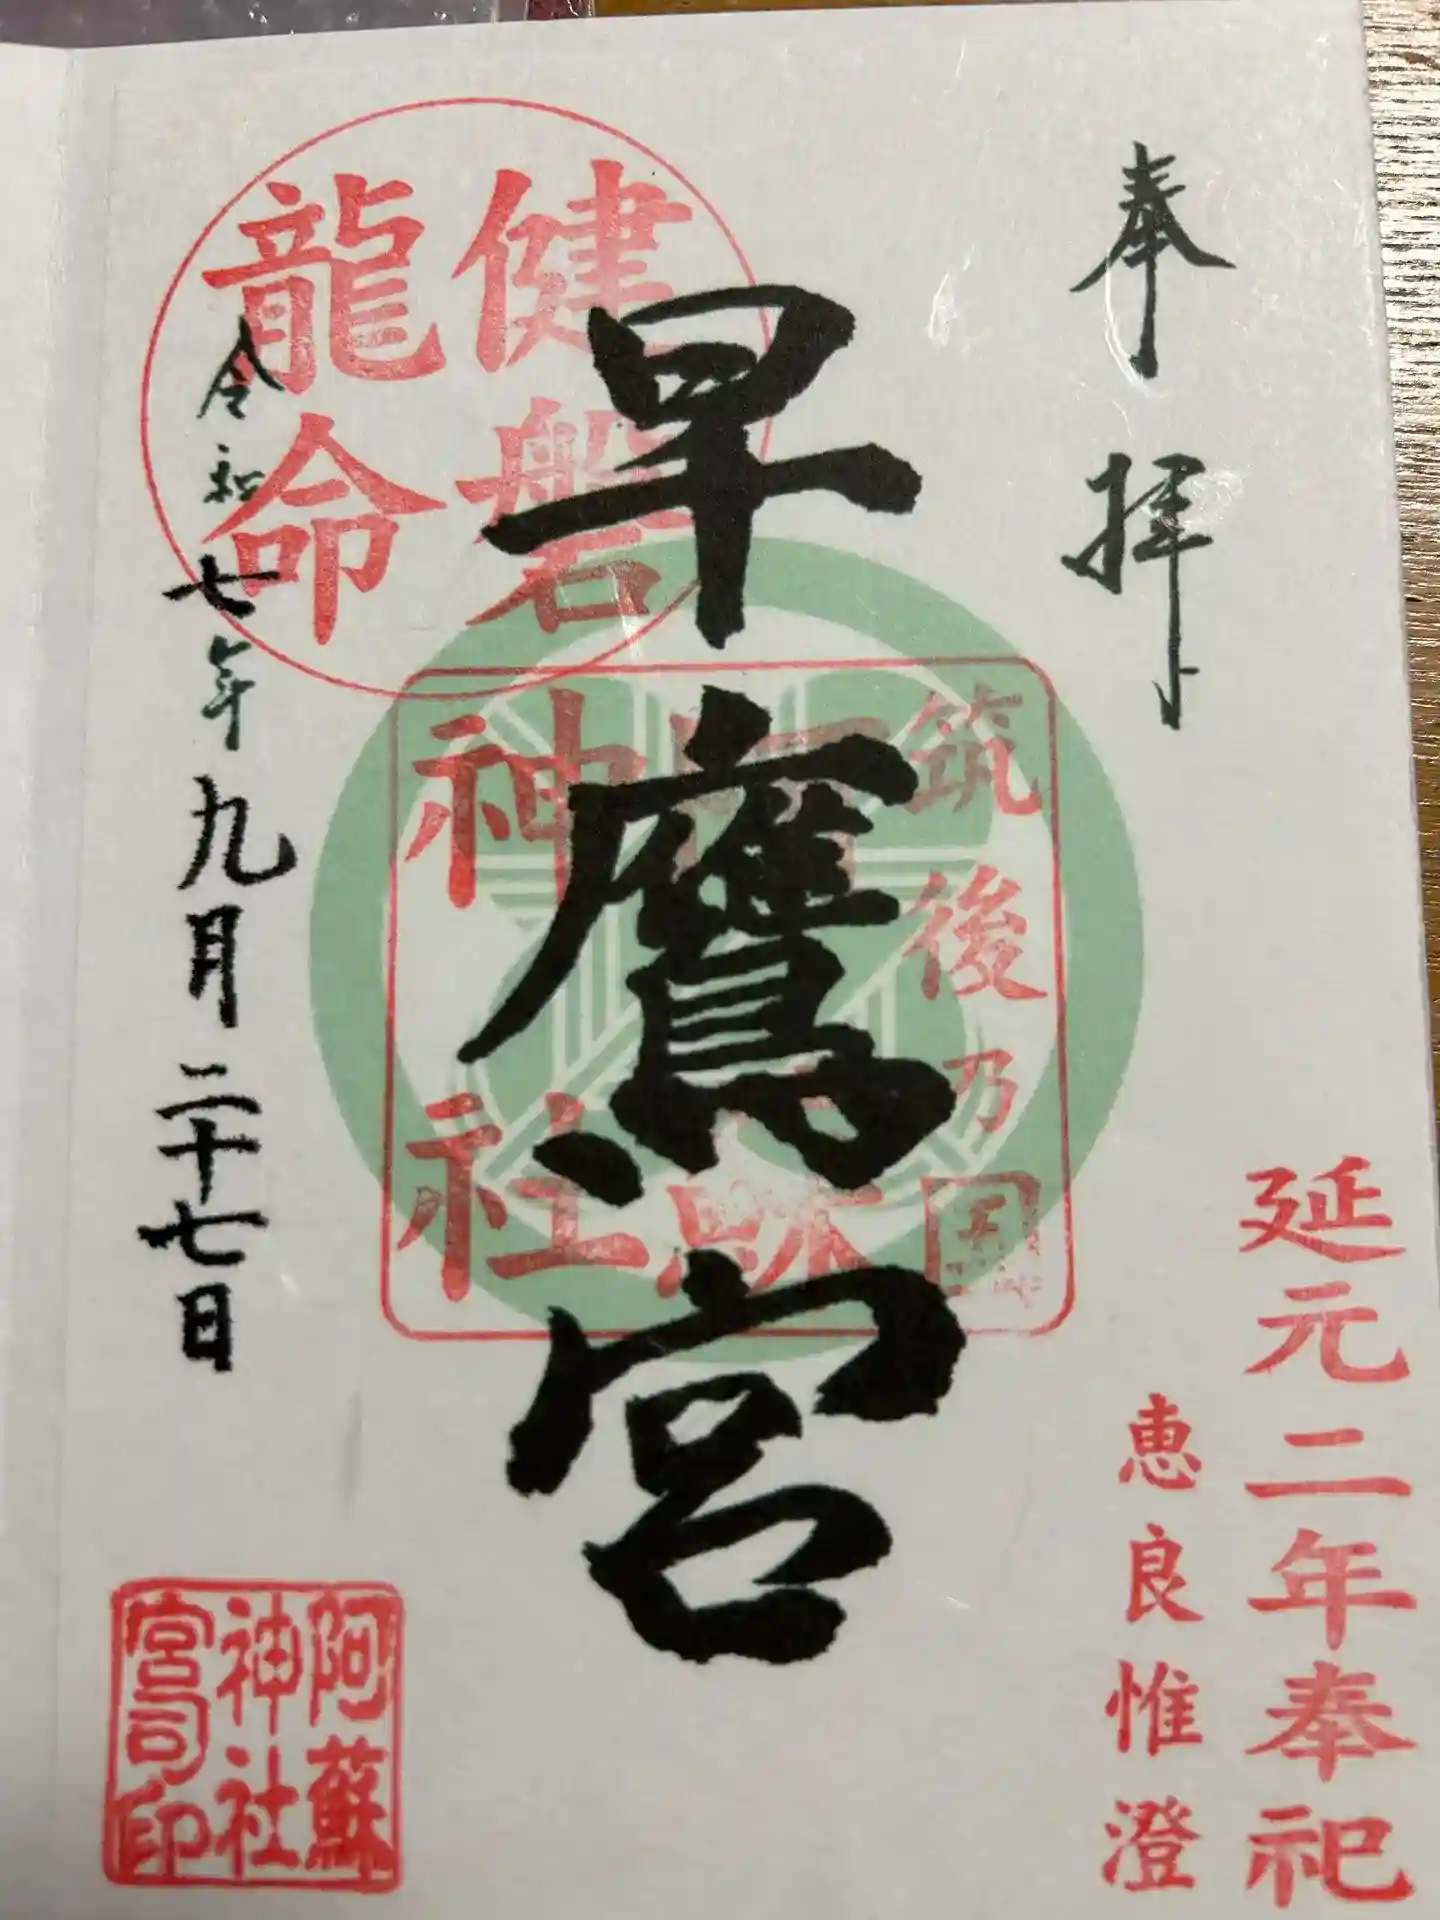 奉拝
延元二年奉祀
恵良惟澄
早鷹宮
筑後乃国
阿蘇
神社
健磐
龍命
令和七年九月二十七日
阿蘇
神社
宮司印